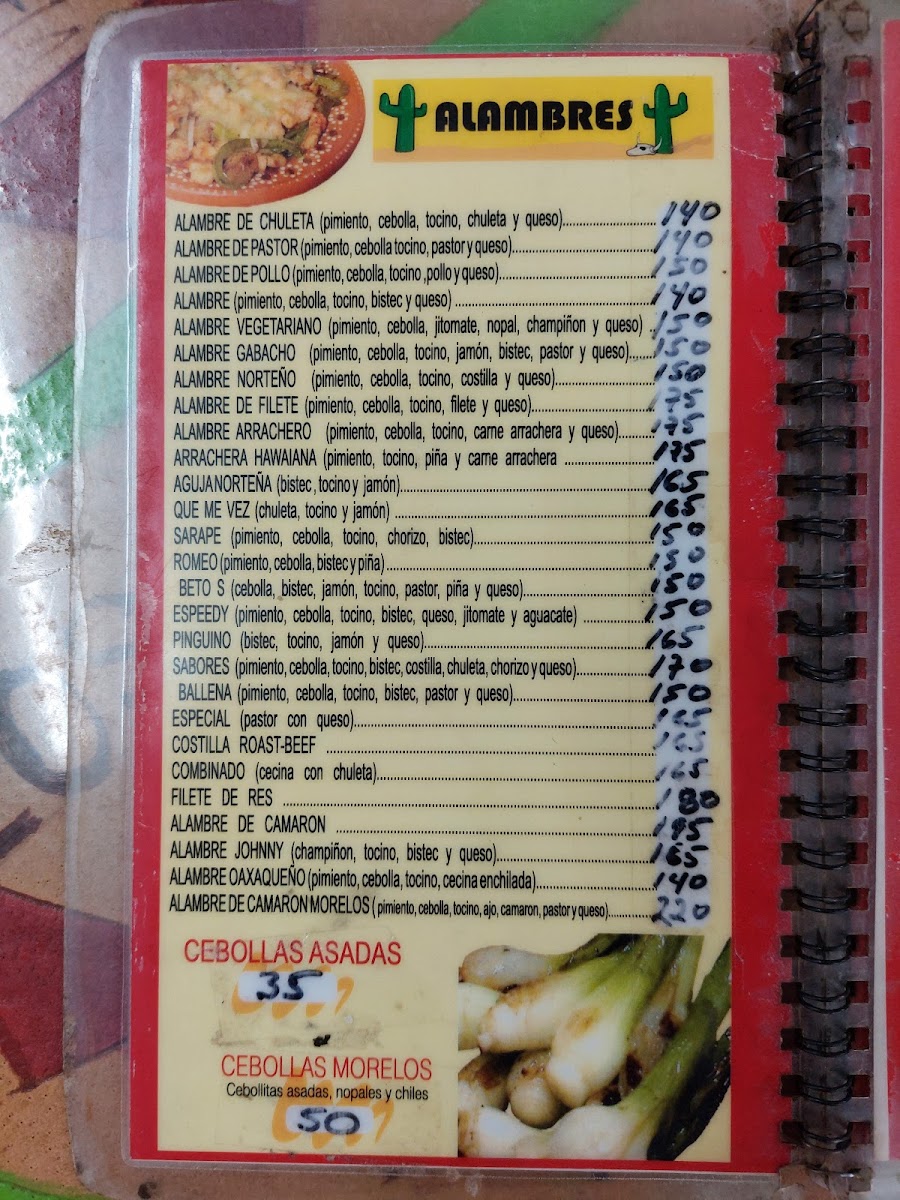 ALAMBRES
ALAMBRE DE CHULETA (pimiento, cebolla, tocino, chuleta y queso)..................... 140
ALAMBRE DE PASTOR (pimiento, cebolla tocino, pastor y queso)..................... 140
ALAMBRE DE POLLO (pimiento, cebolla, tocino ,pollo y queso)..................... 150
ALAMBRE (pimiento, cebolla, tocino, bistec y queso) ..................... 140
ALAMBRE VEGETARIANO (pimiento, cebolla, jitomate, nopal, champiñon y queso) .. 150
ALAMBRE GABACHO (pimiento, cebolla, tocino, jamón, bistec, pastor y queso)....... 150
ALAMBRE NORTEÑO (pimiento, cebolla, tocino, costilla y queso)..................... 150
ALAMBRE DE FILETE (pimiento, cebolla, tocino, filete y queso)..................... 175
ALAMBRE ARRACHERO (pimiento, cebolla, tocino, carne arrachera y queso).......... 175
ARRACHERA HAWAIANA (pimiento, tocino, piña y carne arrachera ..................... 175
AGUJA NORTEÑA (bistec , tocino y jamón)..................... 165
QUE ME VEZ (chuleta, tocino y jamón) ..................... 165
SARAPE (pimiento, cebolla, tocino, chorizo, bistec)..................... 150
ROMEO (pimiento, cebolla, bistec y piña) ..................... 150
BETO S (cebolla, bistec, jamón, tocino, pastor, piña y queso)..................... 150
ESPEEDY (pimiento, cebolla, tocino, bistec, queso, jitomate y aguacate) ..................... 150
PINGUINO (bistec, tocino, jamón y queso)..................... 165
SABORES (pimiento, cebolla, tocino, bistec, costilla, chuleta, chorizo y queso)..................... 170
BALLENA (pimiento, cebolla, tocino, bistec, pastor y queso)..................... 150
ESPECIAL (pastor con queso).....................
COSTILLA ROAST-BEEF ..................... 165
COMBINADO (cecina con chuleta)..................... 165
FILETE DE RES ..................... 180
ALAMBRE DE CAMARON ..................... 195
ALAMBRE JOHNNY (champiñon, tocino, bistec y queso)..................... 165
ALAMBRE OAXAQUEÑO (pimiento, cebolla, tocino, cecina enchilada)..................... 140
ALAMBRE DE CAMARON MORELOS ( pimiento, cebolla, tocino, ajo, camaron, pastor y queso)............... 220
CEBOLLAS ASADAS
35
CEBOLLAS MORELOS
Cebollitas asadas, nopales y chiles
50